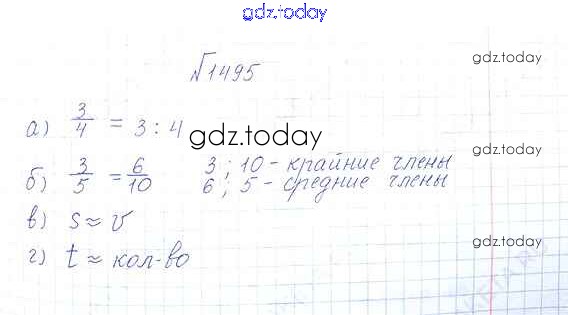 gdz.today
№1495
gdz.today
а) 3/4 = 3 : 4
gdz.today
gdz.today
б) 3/5 = 6/10 3 ; 10 - крайние члены
6 ; 5 - средние члены
gdz.today
в) s ≈ v
gdz.today
г) t ≈ кол-во